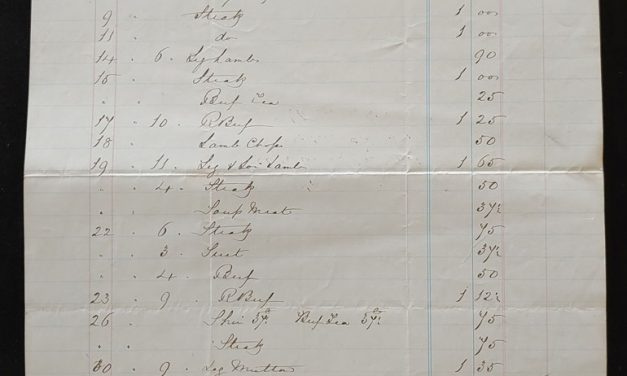 9 " Steak 1 00
11 " do 1 00
14 " 6 " Leg Lamb 90
15 Steak 1 00
" " Beef Tea 25
17 " 10 " R Beef 1 25
18 Lamb Chops 50
19 " 11 " Leg & Loin Lamb 1 65
" 4 " Steak 50
" " Soup Meat 37½
22 " 6 " Steak 75
" 3 " Suet 37½
" 4 " Beef 50
23 " 9 " R Beef 1 12½
26 " Shin 37½ Beef Tea 37½ 75
" " Steak 75
30 " 9 " Leg Mutton 1 35